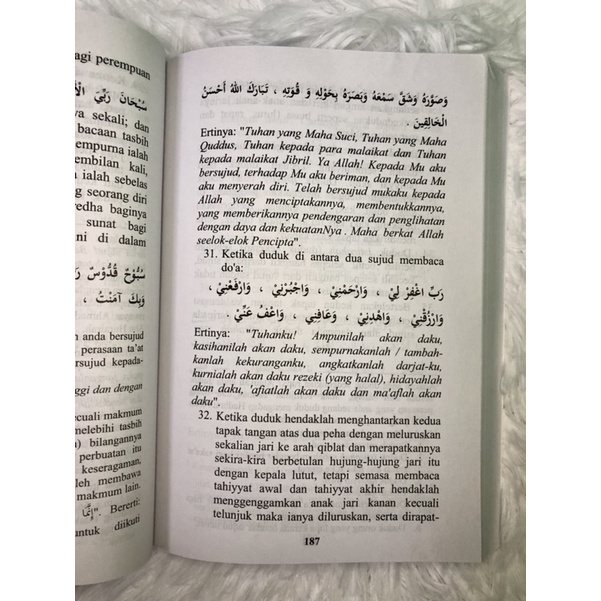 agi perempuan
سُبْحَانَ رَبِّيَ الْأَ
ya sekali; dan
bacaan tasbih
mpurna ialah
mbilan kali,
ialah sebelas
g seorang diri
redha baginya
sunat bagi
ni di dalam
سُبُّوْحٌ قُدُّوْسٌ رَ
وَبِكَ آمَنْتُ ،
n anda bersujud
perasaan ta'at
ersujud kepada-
ggi dan dengan
ecuali makmum
elebihi tasbih
) bilangannya
perbuatan itu
keseragaman,
leh membawa
makmum lain.
"إِنَّمَا. Bererti:
untuk diikuti
وَصَوَّرَهُ وَشَقَّ سَمْعَهُ وَبَصَرَهُ بِحَوْلِهِ وَ قُوَّتِهِ ، تَبَارَكَ اللهُ أَحْسَنُ
الْخَالِقِينَ .
Ertinya: "Tuhan yang Maha Suci, Tuhan yang Maha
Quddus, Tuhan kepada para malaikat dan Tuhan
kepada malaikat Jibril. Ya Allah! Kepada Mu aku
bersujud, terhadap Mu aku beriman, dan kepada Mu
aku menyerah diri. Telah bersujud mukaku kepada
Allah yang menciptakannya, membentukkannya,
yang memberikannya pendengaran dan penglihatan
dengan daya dan kekuatanNya . Maha berkat Allah
seelok-elok Pencipta".
31. Ketika duduk di antara dua sujud membaca
do'a:
رَبِّ اغْفِرْ لِيْ ، وَارْحَمْنِيْ ، وَاجْبُرْنِيْ ، وَارْفَعْنِيْ ،
وَارْزُقْنِيْ ، وَاهْدِنِيْ ، وَعَافِنِيْ ، وَاعْفُ عَنِّيْ .
Ertinya: "Tuhanku! Ampunilah akan daku,
kasihanilah akan daku, sempurnakanlah / tambah-
kanlah kekuranganku, angkatkanlah darjat-ku,
kurnialah akan daku rezeki (yang halal), hidayahlah
akan daku, 'afiatlah akan daku dan ma'aflah akan
daku".
32. Ketika duduk hendaklah menghantarkan kedua
tapak tangan atas dua peha dengan meluruskan
sekalian jari ke arah qiblat dan merapatkannya
sekira-kira berbetulan hujung-hujung jari itu
dengan kepala lutut, tetapi semasa membaca
tahiyyat awal dan tahiyyat akhir hendaklah
menggenggamkan anak jari kanan kecuali
telunjuk maka ianya diluruskan, serta dirapat-
187